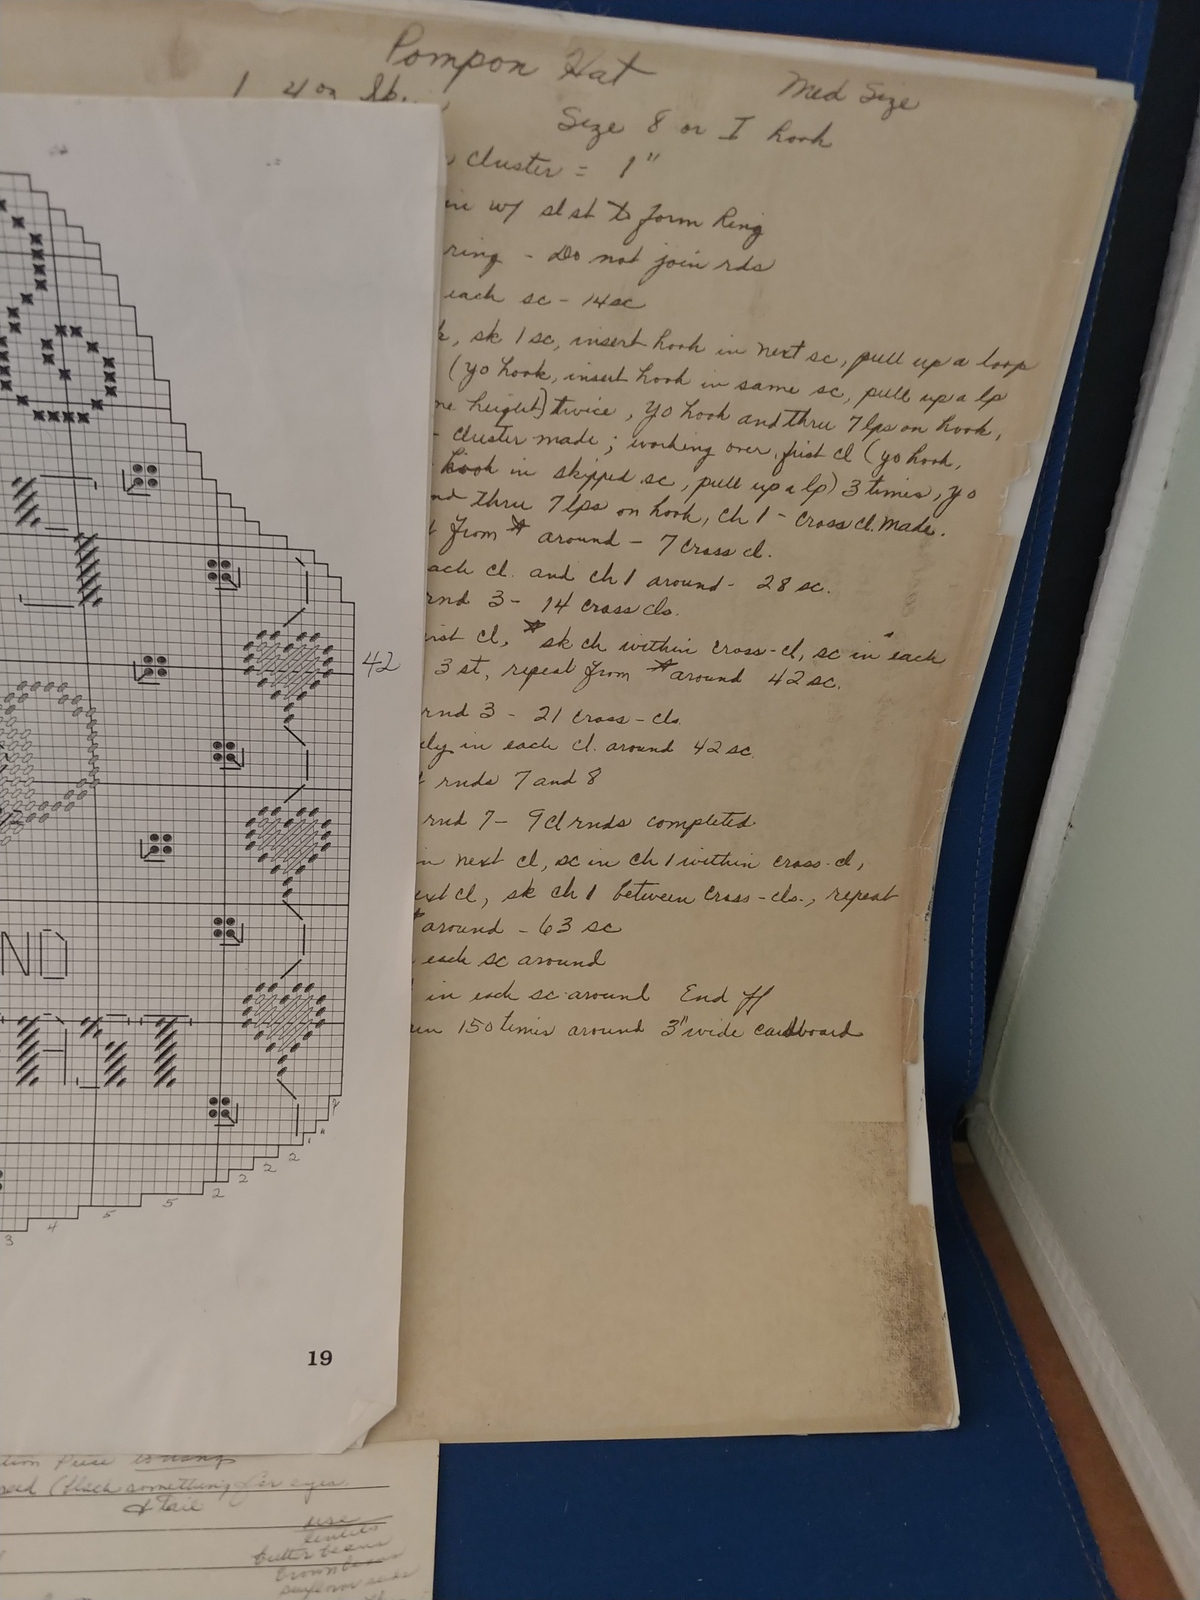 Pompon Hat
Med Size
1 4 oz
Size 8 or I hook
cluster = 1"
w/ sl st to form Ring
ring - Do not join rds
each sc - 14 sc
, sk 1 sc, insert hook in next sc, pull up a loop
(yo hook, insert hook in same sc, pull up a lp
height) twice, yo hook and thru 7 lps on hook,
- cluster made; working over first cl (yo hook,
hook in skipped sc, pull up a lp) 3 times, yo
thru 7 lps on hook, ch 1 - cross cl. made.
from * around - 7 cross cl.
cl. and ch 1 around - 28 sc.
rnd 3 - 14 cross cls.
cl, * sk ch within cross-cl, sc in each
3 st, repeat from * around 42 sc.
rnd 3 - 21 cross-cls.
in each cl. around 42 sc
rnds 7 and 8
rnd 7 - 9 cl rnds completed
in next cl, sc in ch 1 within cross-cl,
cl, sk ch 1 between cross-cls., repeat
* around - 63 sc
each sc around
in each sc around End off
150 times around 3" wide cardboard
42
ND
2
2
2
2
5
5
4
3
19
Piece
(black something for eyes
& tail
use
butter beans